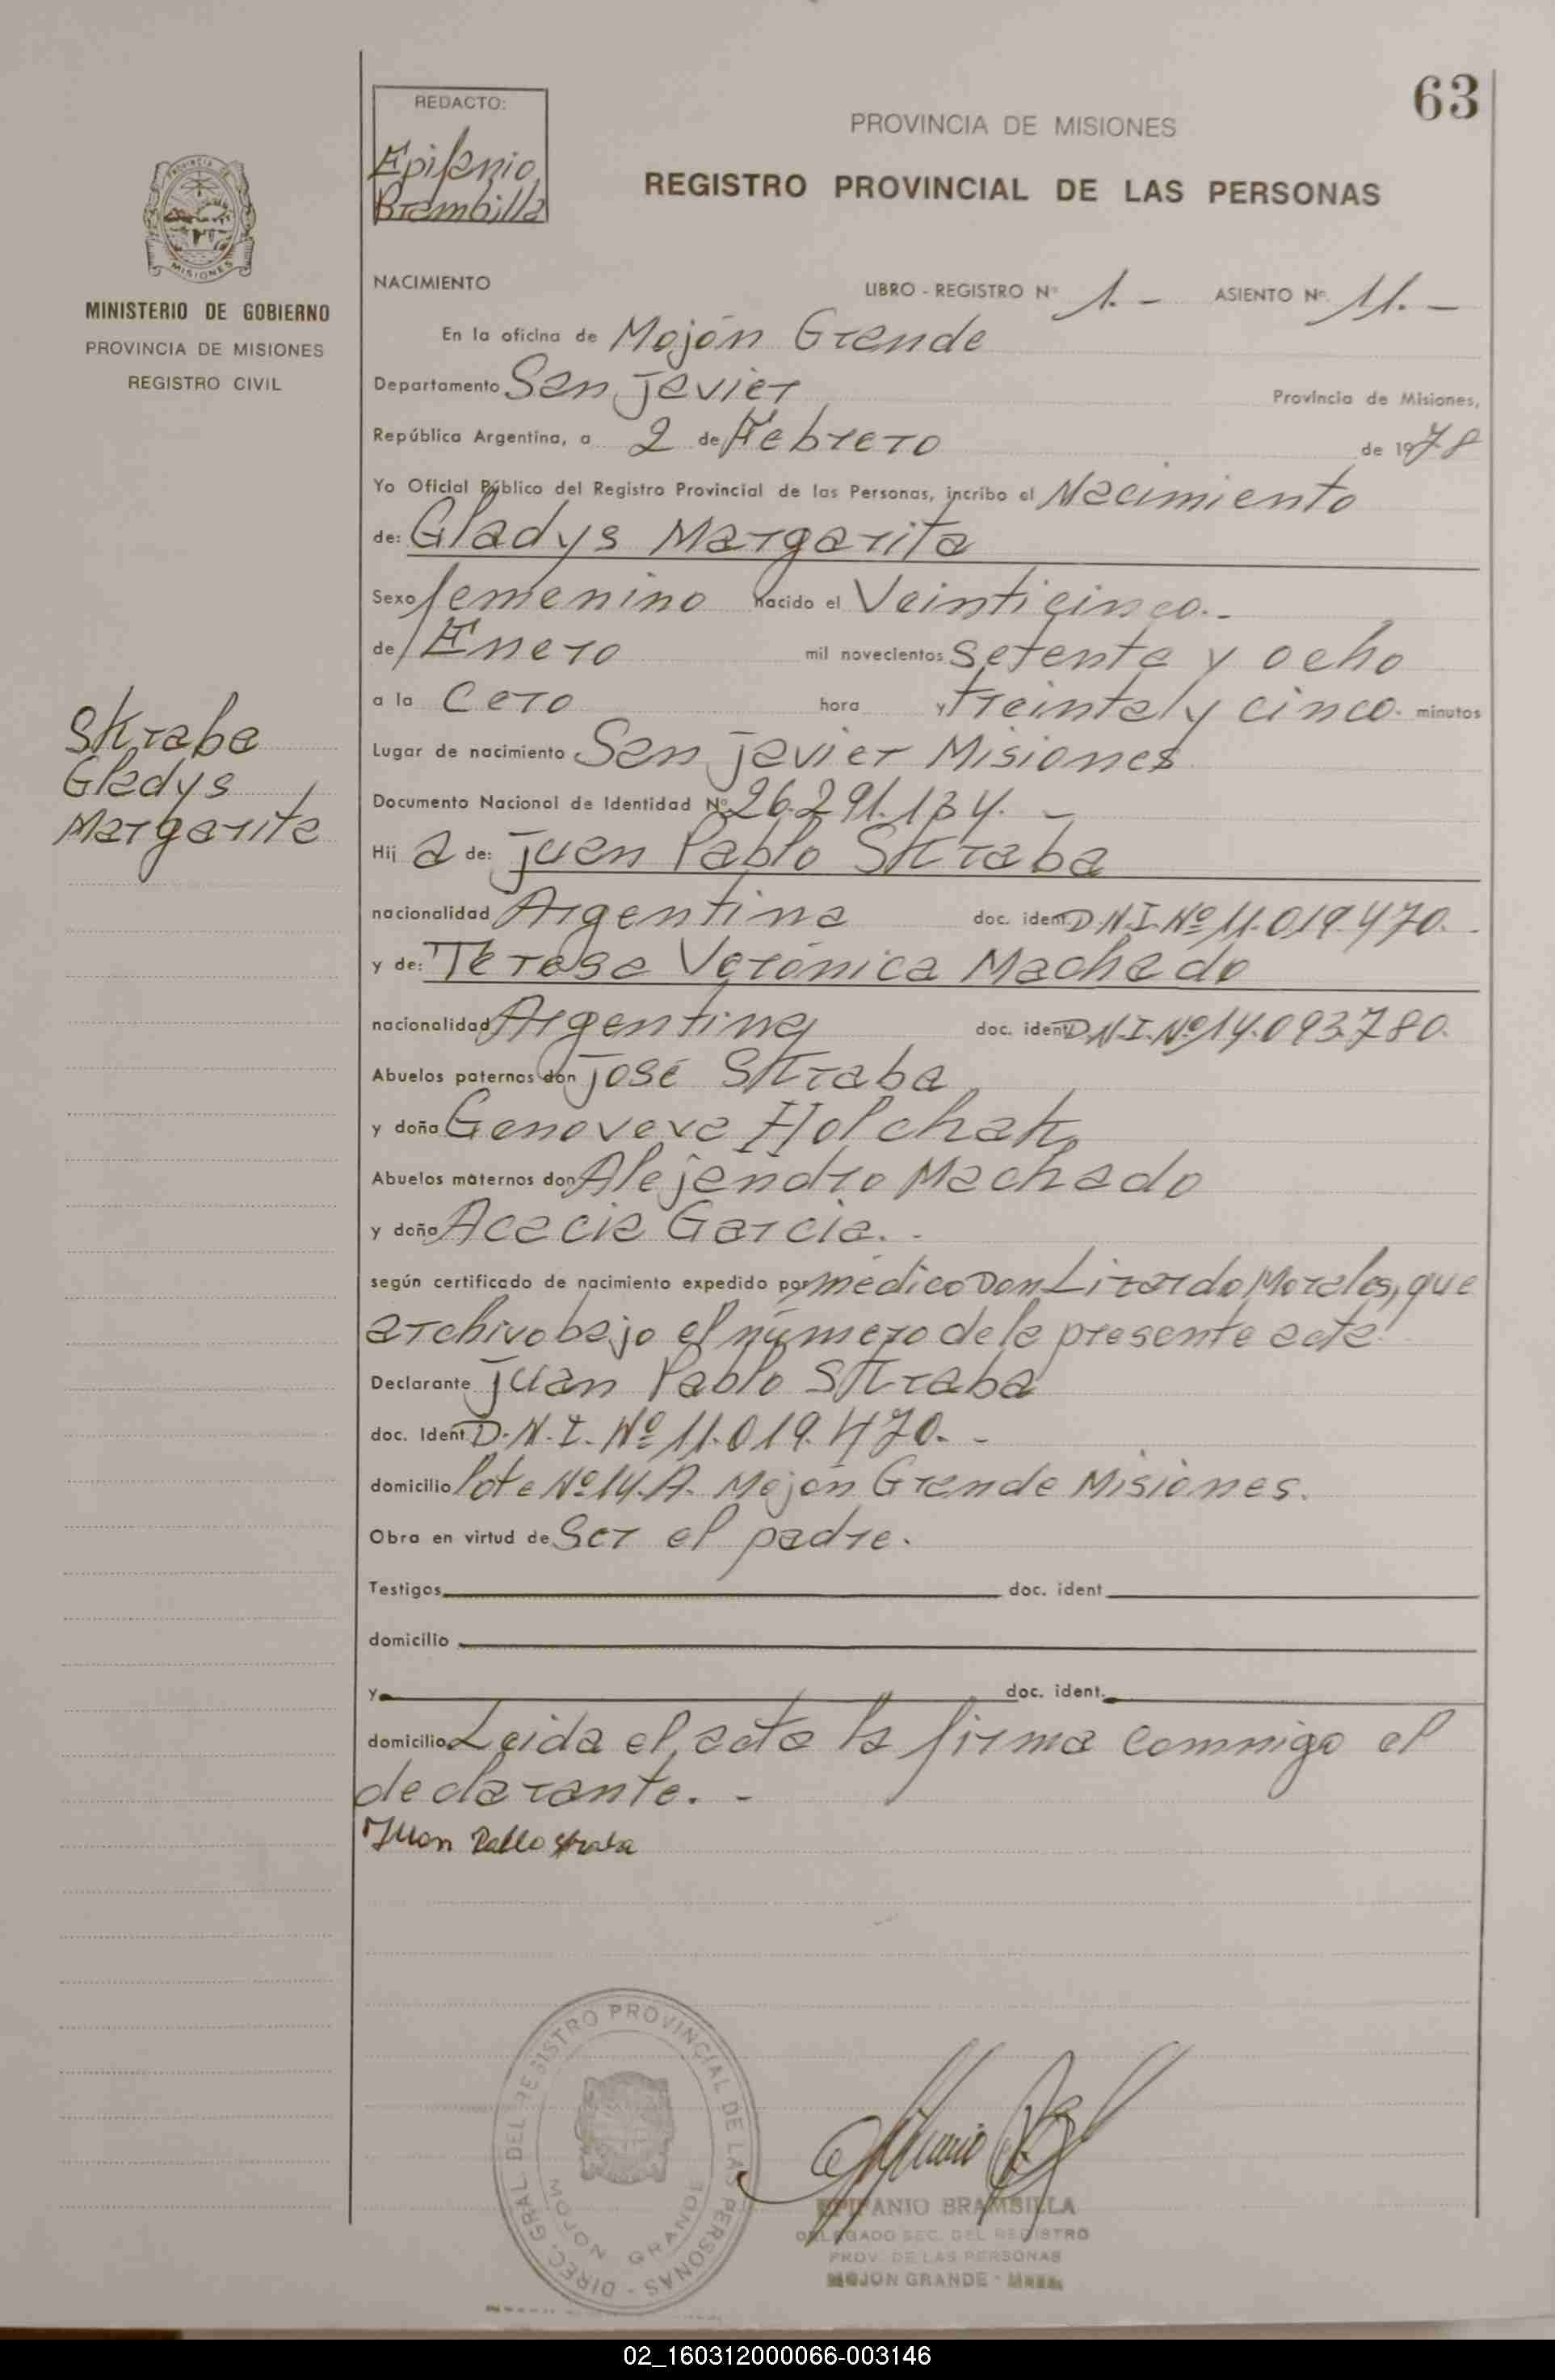 63
REDACTO:
Epifanio
Brambilla
PROVINCIA DE MISIONES
REGISTRO PROVINCIAL DE LAS PERSONAS
PROVINCIA DE
MISIONES
MINISTERIO DE GOBIERNO
PROVINCIA DE MISIONES
REGISTRO CIVIL
NACIMIENTO LIBRO - REGISTRO Nº 1. - ASIENTO Nº. 11. -
En la oficina de Mojón Grande
Departamento San Javier Provincia de Misiones,
República Argentina, a 2 de Febrero de 1978
Yo Oficial Público del Registro Provincial de las Personas, incribo el Nacimiento
de: Gladys Margarita
Sexo femenino nacido el Veinticinco.-
de Enero mil novecientos setenta y ocho
a la Cero hora y treinta y cinco. minutos
Skraba
Gladys
Margarita
Lugar de nacimiento San Javier Misiones
Documento Nacional de Identidad Nº 26.291.134. -
Hij a de: Juan Pablo Skraba
nacionalidad Argentina doc. ident. D.N.I. Nº 11.019.470.-
y de: Teresa Verónica Machado
nacionalidad Argentina doc. ident. D.N.I. Nº 14.093.780.
Abuelos paternos don José Skraba
y doña Genoveva Holchak
Abuelos maternos don Alejandro Machado
y doña Acacia Garcia. -
según certificado de nacimiento expedido por médico Don Lizardo Morales, que
archivo bajo el número de la presente acta.
Declarante Juan Pablo Skraba
doc. Ident. D.N.I. Nº 11.019.470. -
domicilio lote Nº 14.A. Mojón Grande Misiones.
Obra en virtud de Ser el padre.
Testigos doc. ident
domicilio
y doc. ident.
domicilio Leida el acta la firma commigo el
declarante. -
Juan Pablo Skraba
DIREC. GRAL DEL REGISTRO PROVINCIAL DE LAS PERSONAS -
MOJON GRANDE
EPIFANIO BRAMBILLA
DELEGADO SEC. DEL REGISTRO
PROV. DE LAS PERSONAS
MOJON GRANDE -
02_160312000066-003146